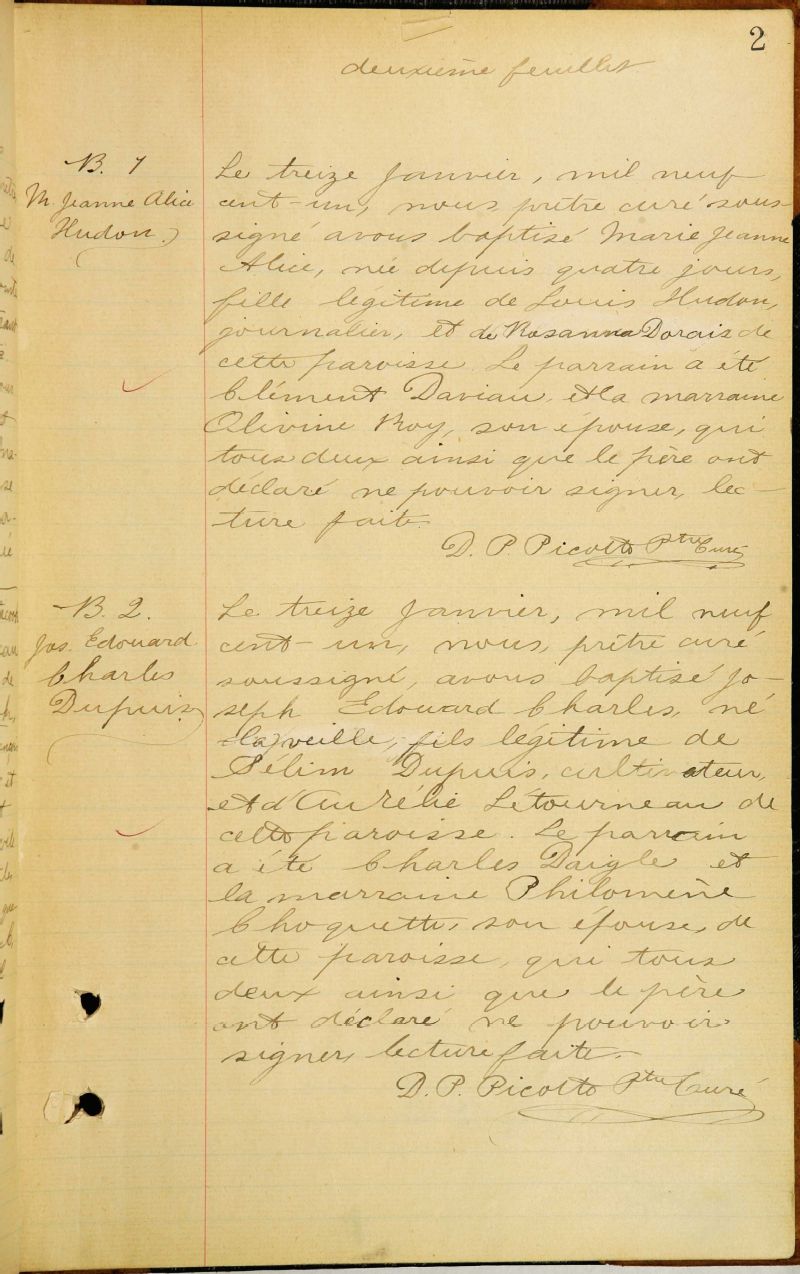 2
deuxième feuillet
B. 1
M. Jeanne Alice
Hudon.
Le treize Janvier, mil neuf
cent-un, nous, prêtre curé sous-
signé avous baptisé Marie Jeanne
Alice, née depuis quatre jours,
fille légitime de Louis Hudon,
journalier, et de Rosanna Dorais de
cette paroisse. Le parrain a été
Clément Daviau, et la marraine
Olivine Roy, son épouse, qui
tous deux ainsi que le père ont
déclaré ne pouvoir signer, lec-
ture faite.
D. P. Picotto Ptre Curé
B. 2.
Jos. Edouard
Charles
Dupuis
Le treize Janvier, mil neuf
cent-un, nous, prêtre curé
soussigné, avous baptisé Jo-
seph Edouard Charles, né
la veille, fils légitime de
Sélim Dupuis, cultivateur,
et d'Aurélie Létourneau de
cette paroisse. Le parrain
a été Charles Daigle et
la marraine Philomène
Choquette, son épouse, de
cette paroisse, qui tous
deux ainsi que le père
ont déclaré ne pouvoir
signer, lecture faite.
D. P. Picotto Ptre Curé